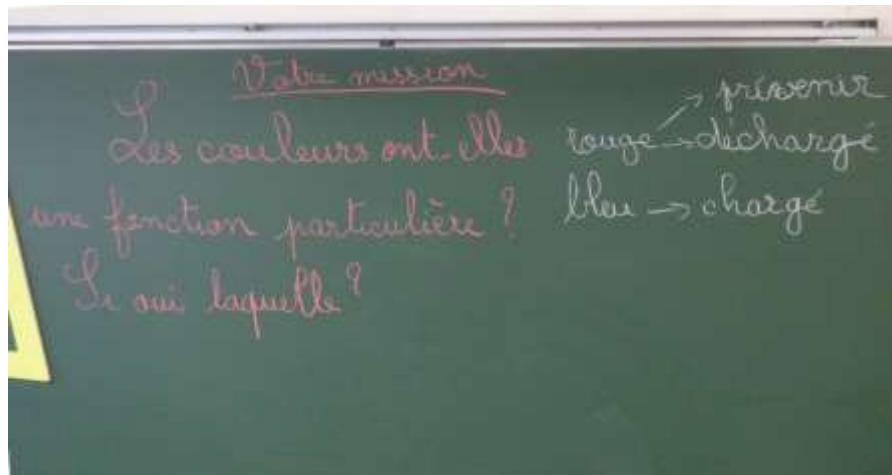 Votre mission
Les couleurs ont-elles
une fonction particulière ?
Si oui laquelle ?
prévenir
rouge → déchargé
bleu → chargé